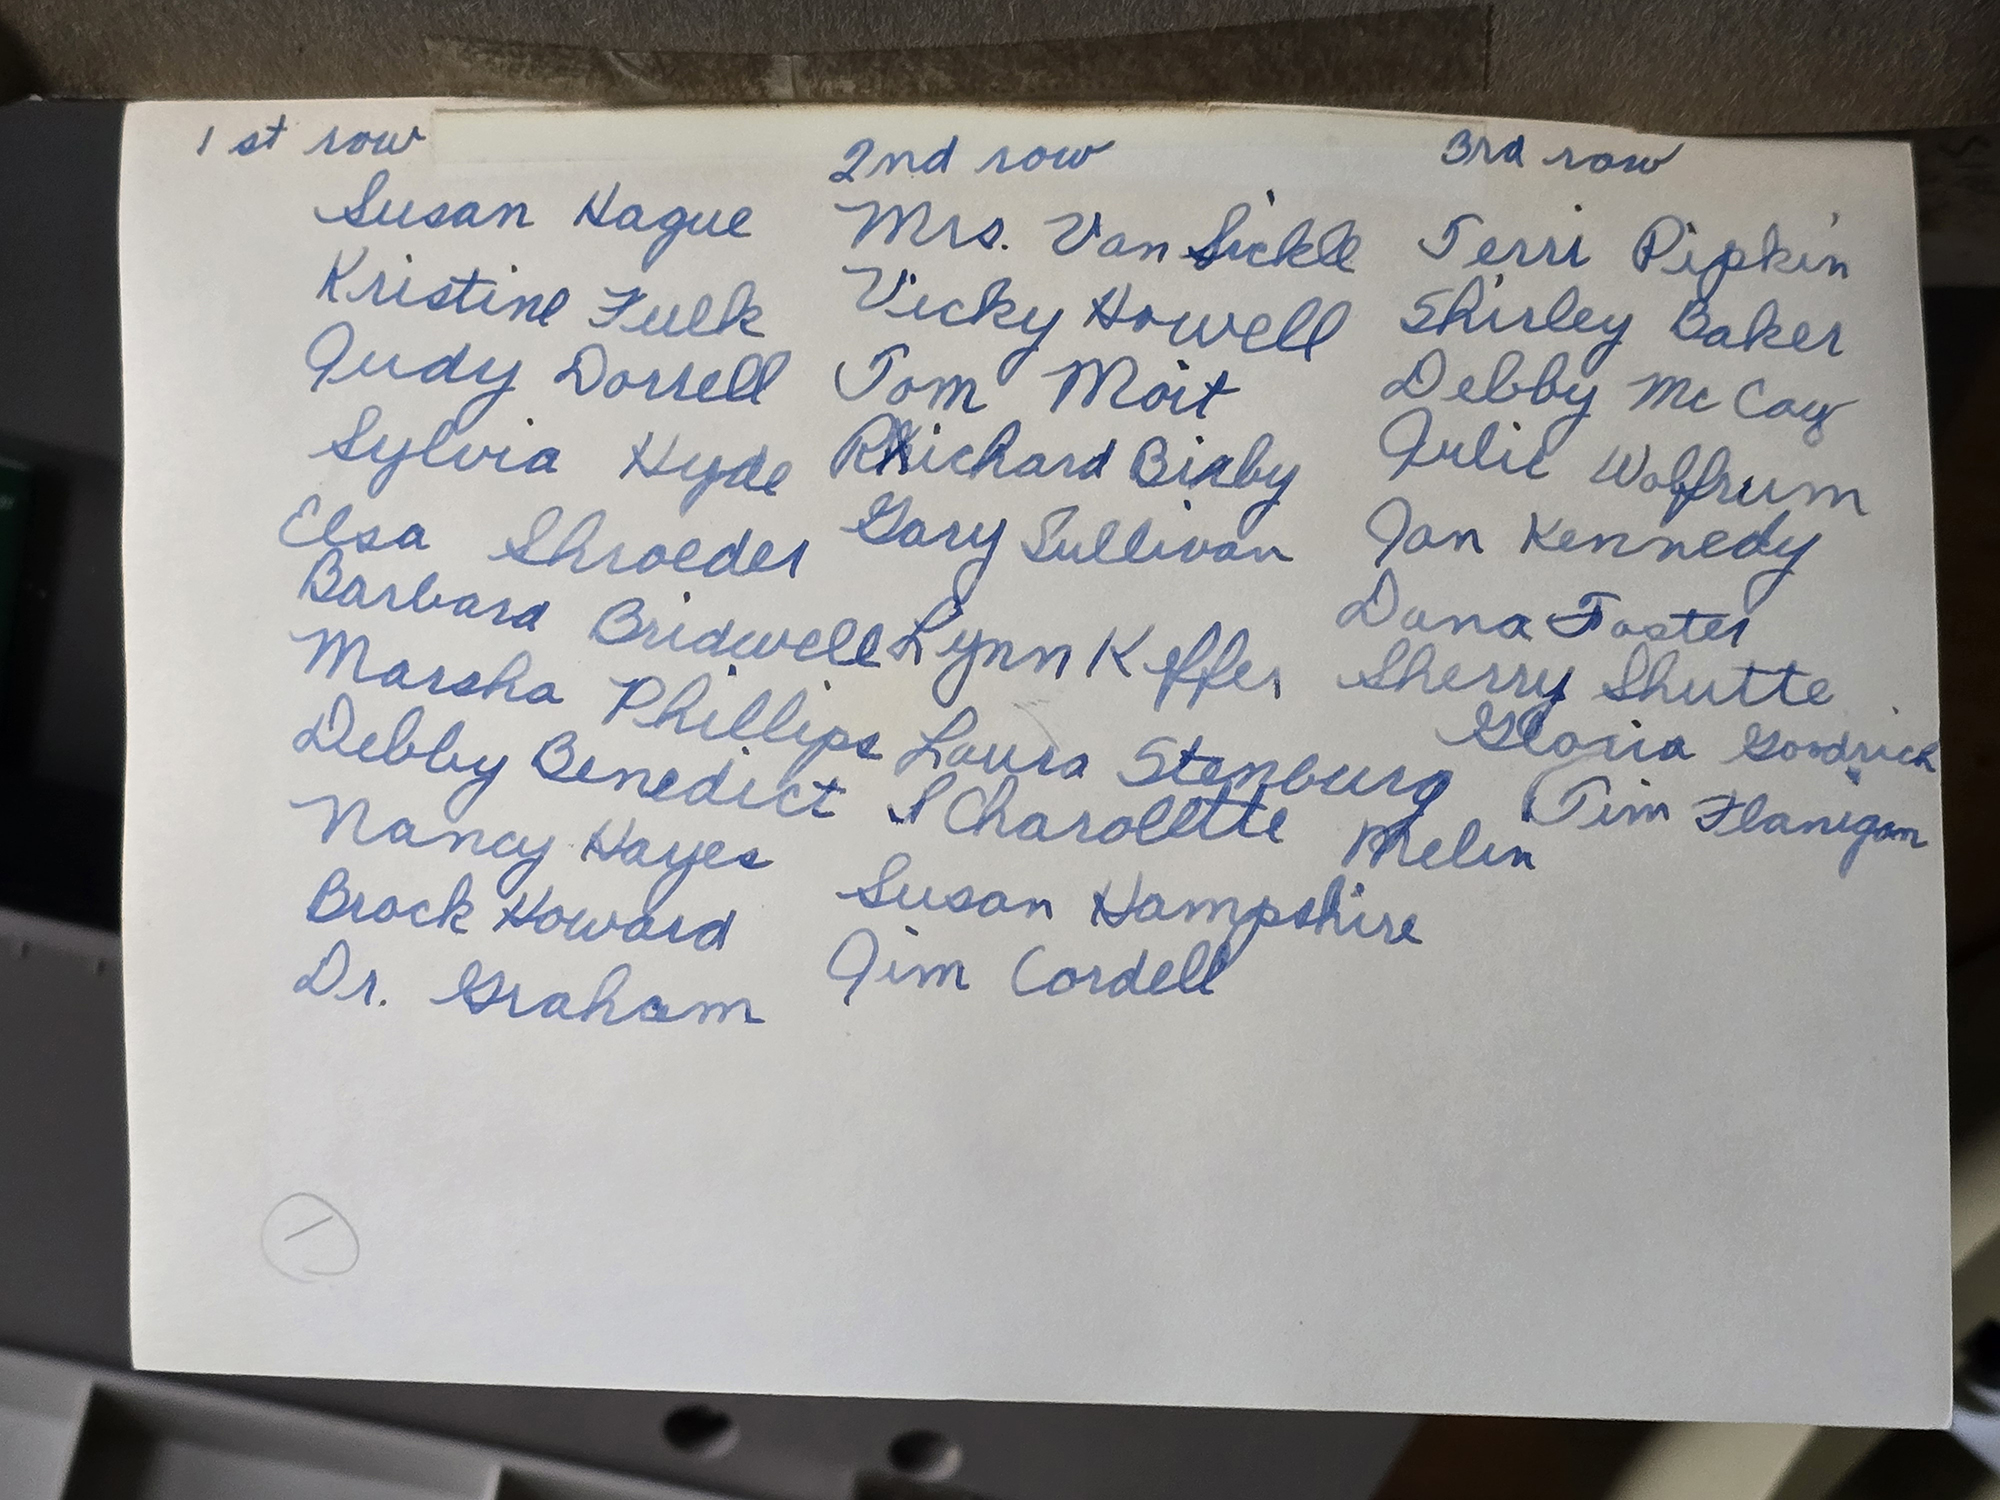 1st row
Susan Hague
Kristine Fulk
Judy Dorrell
Sylvia Hyde
Elsa Shroeder
Barbara Bridwell
Marsha Phillips
Debby Benedict
Nancy Hayes
Brock Howard
Dr. Graham
2nd row
Mrs. Van Sickle
Vicky Howell
Tom Moit
Richard Bixby
Gary Sullivan
Lynn Keffer
Laura Stenburg
Charolette Melin
Susan Hampshire
Jim Cordell
3rd row
Terri Pipkin
Shirley Baker
Debby McCoy
Julie Wolfrum
Jan Kennedy
Dana Foster
Sherry Shutte
Gloria Goodrich
Tim Flanigan